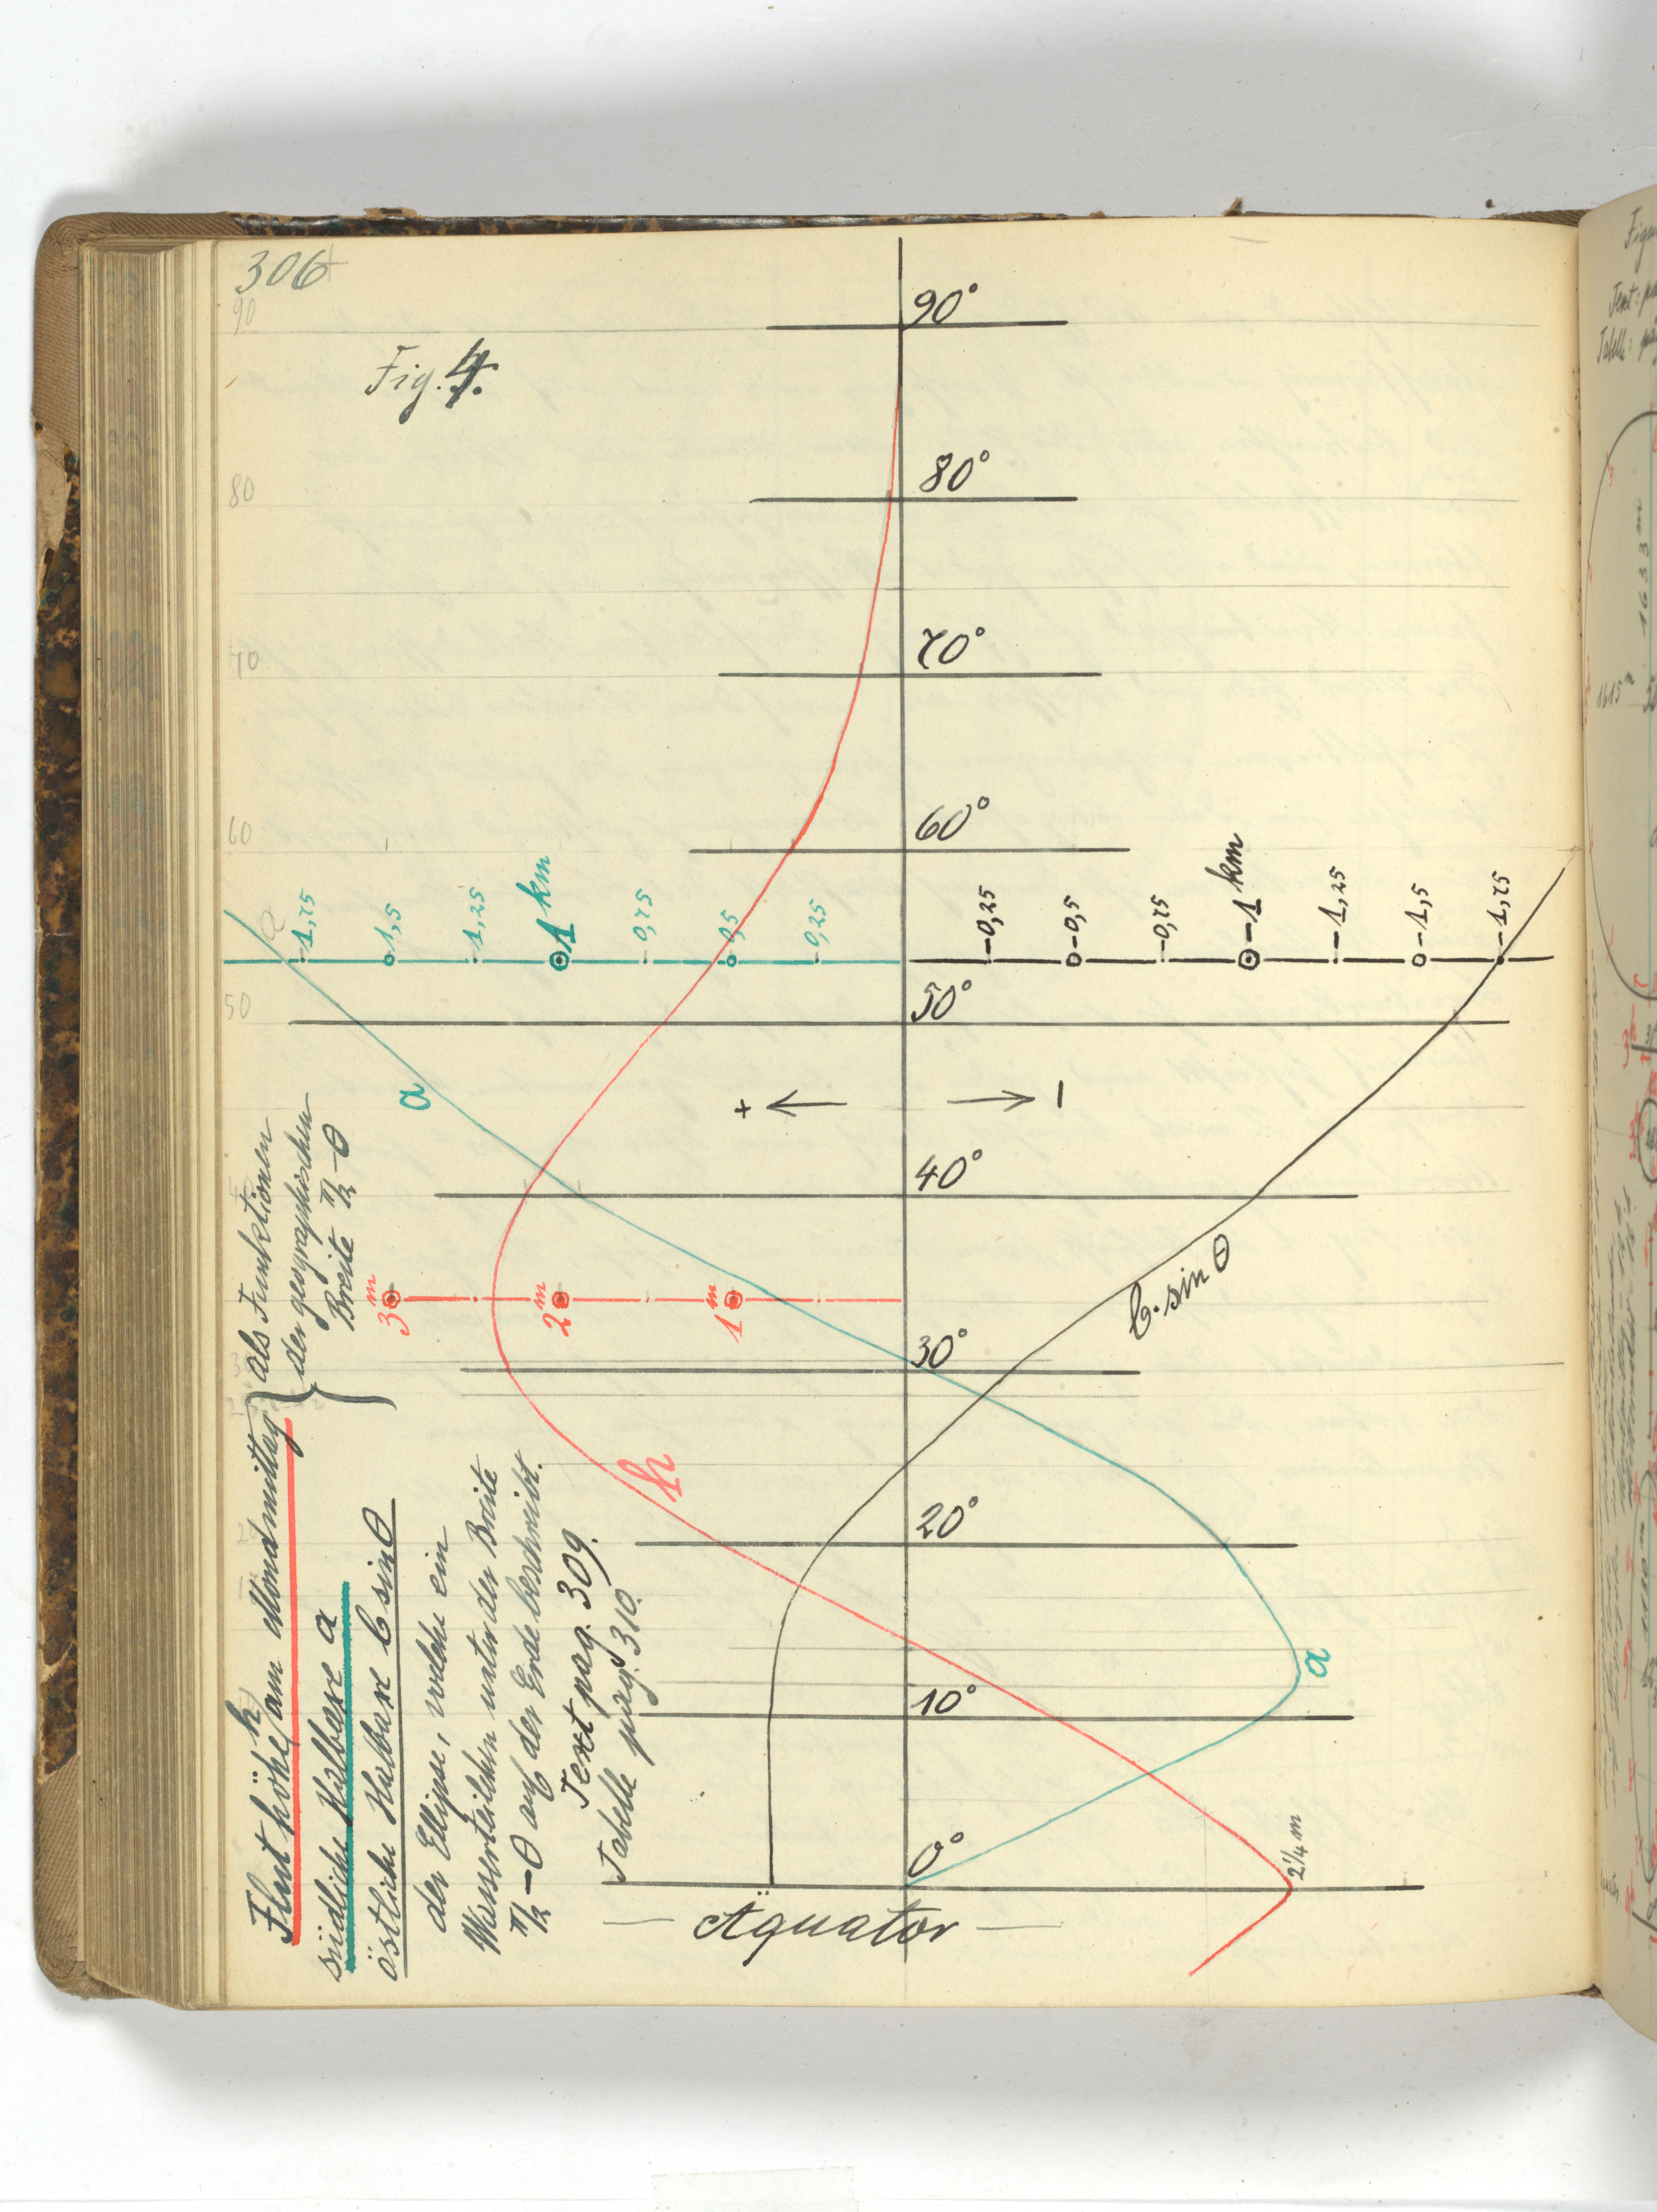 306
90
Fig. 4.
90°
80
80°
70
70°
60
60°
a
1,75
1,5
1,25
1 km
0,75
0,5
0,25
-0,25
-0,5
-0,75
-1 km
-1,25
-1,5
-1,75
50
50°
a
+
−
40°
b·sin θ
3 m
2 m
1 m
30°
h
20°
a
10°
0°
2¼ m
— Äquator —
Fluthöhe h am Mondmittag
südliche Halbaxe a
östliche Halbaxe b sin θ
als Funktionen
der geographischen
Breite π/2 − θ
der Ellipse, welche ein
Wasserteilchen unter der Breite
π/2 − θ auf der Erde beschreibt.
Text pag. 309.
Tabelle pag. 310.
Text:
Tabelle:
1633 m
1615